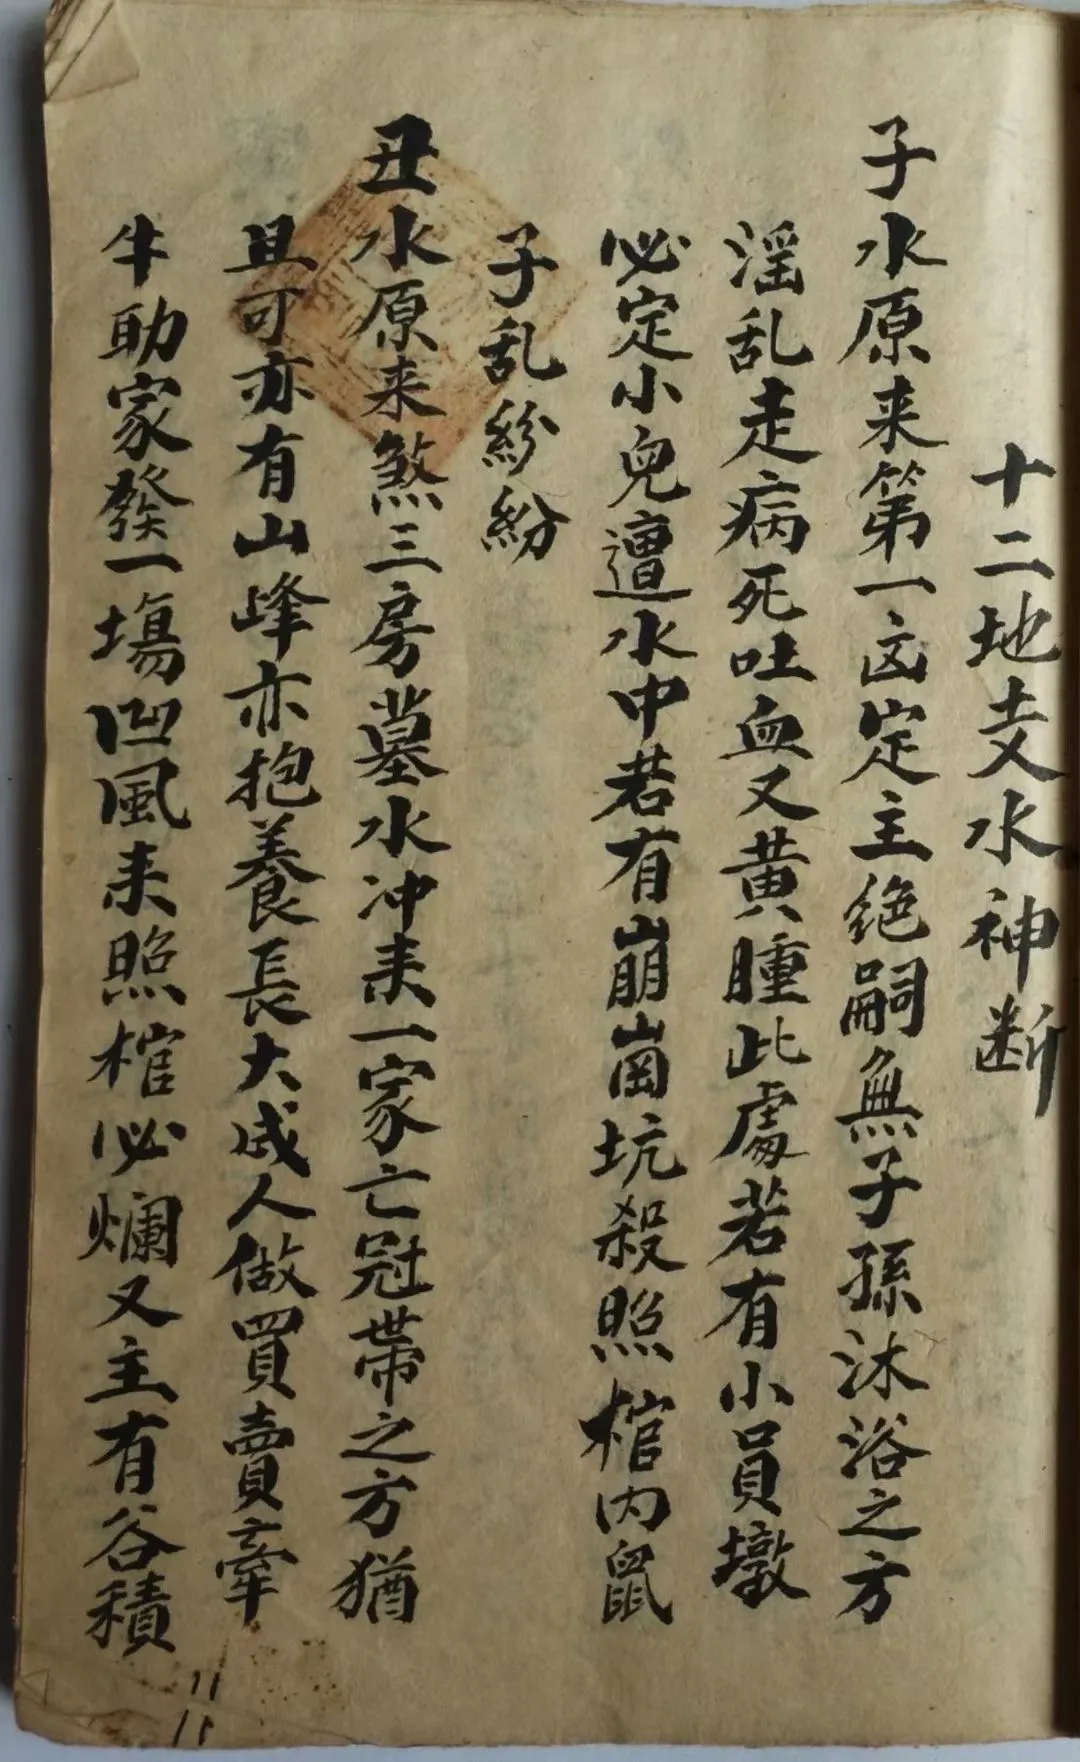 十二地支水神断
子水原来第一凶定主绝嗣無子孫沐浴之方
淫乱走病死吐血又黄腫此處若有小員墩
必定小兒遭水中若有崩崗坑殺照棺内鼠
子乱紛紛
丑水原来煞三房墓水冲来一家亡冠帶之方猶
且可亦有山峰亦抱養長大成人做買賣牽
牛助家發一塲凹風来照棺必爛又主有谷積